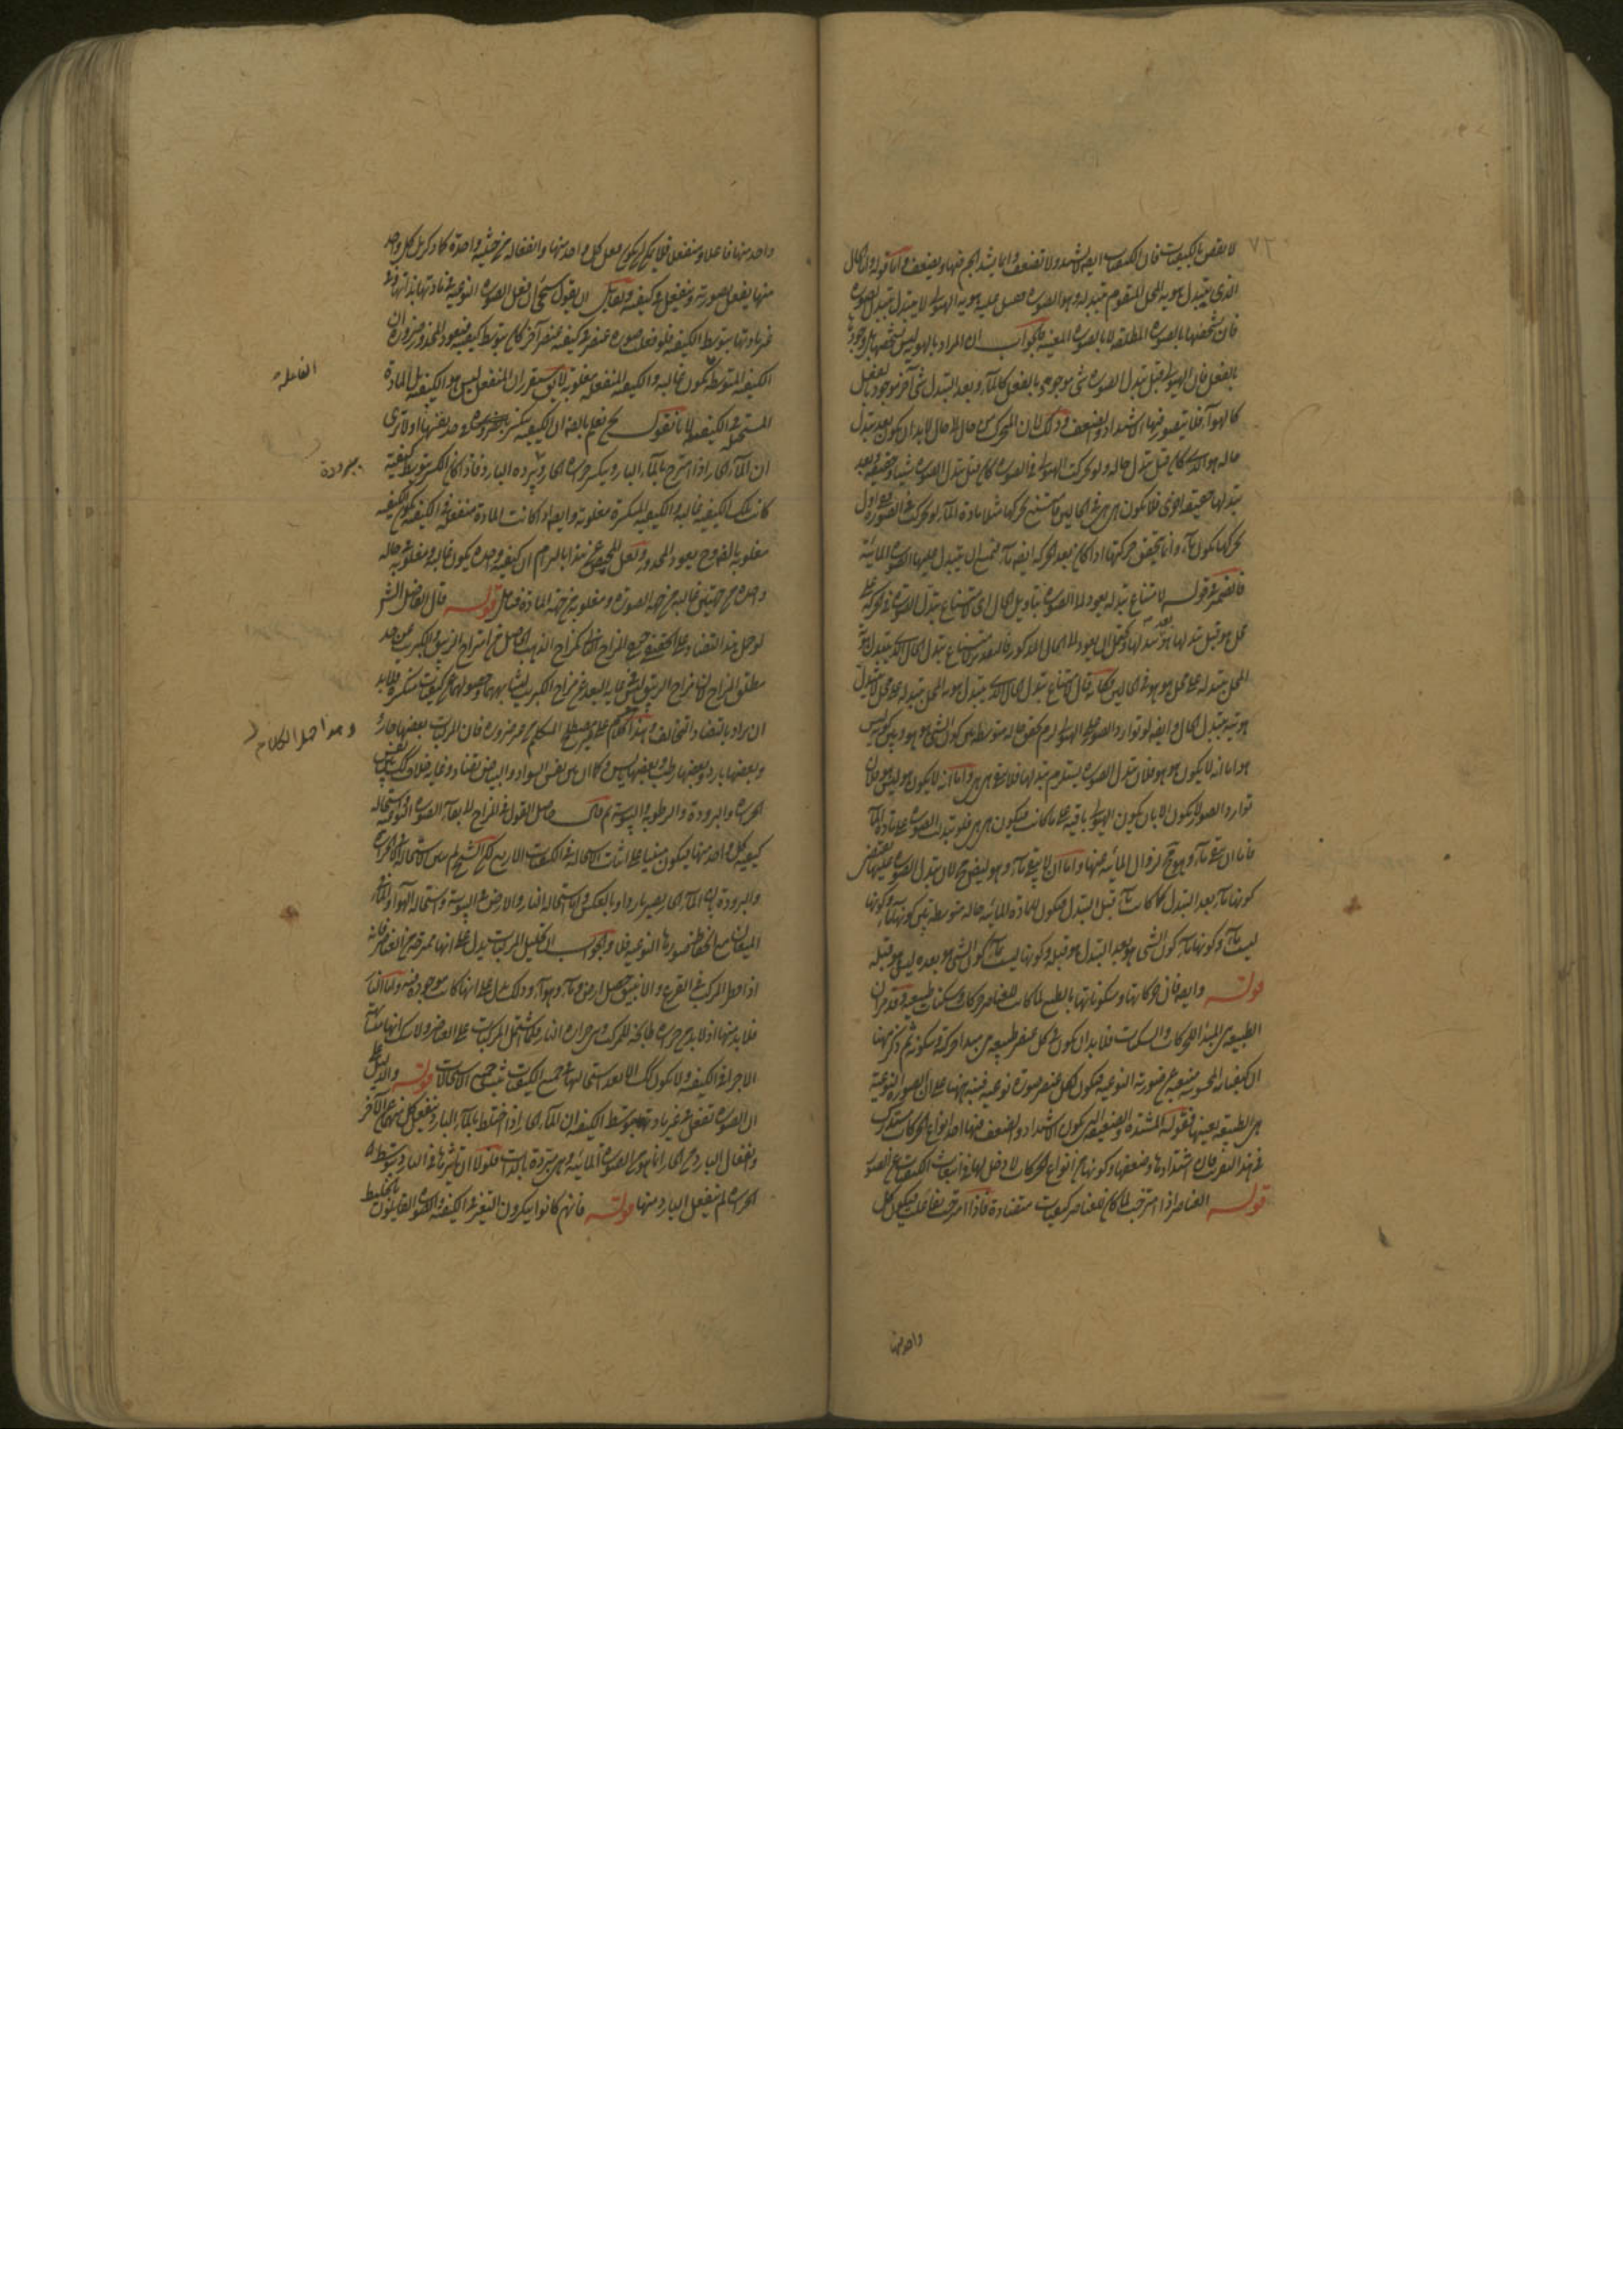 لا ينقص بالكيفيات فان الكيفيات ايضا لا تشتد ولا تضعف وانما يشتد الجسم فيها ويضعف واما قوله واما الحال
الذى يتبدل هويه المحل المتقوم بتبدله وهو الصورة فليس عليه هويه الهيولى لا يتبدل بتبدل الصورة
فان تشخصها بالصورة المطلقه لا بالصورة المعينه فالجواب ان المراد بالهويه ليس تشخصها بل وجودها
بالفعل فان الهيولى قبل تبدل الصورة شى موجود بالفعل كالماء وبعد التبدل شى آخر موجود بالفعل
كالهواء فلا يتصور فيها الاشتداد والضعف وذلك لان المتحرك من حال الى حال لابد ان يكون بعد تبدل
حاله هو الذى كان قبل تبدل حاله ولو تحركت الهيولى فى الصورة كان قبل تبدل الصورة شيئا وحقيقه وبعد
تبدلها حقيقه اخرى فلا يكون هى هى فى الحالين فامتنع تحركها مثلا مادة الماء لو تحركت فى الصورة وفى اول
تحركها يكون ماء وانما يتحقق حركتها اذا كان بعد الحركه ايضا ماء فيمتنع ان يتبدل عليها الصورة المائية
فالضمير فى قوله لامتناع تبدله يعود الى الصورة بتاويل الحال اى لامتناع تبدل الصورة فى الحركه على
محل هو قبل تبدلها هو بعد تبدلها ويحتمل ان يعود الى الحال المذكور فالتقدير لامتناع تبدل الحال الذى يتبدل هويه
المحل بتبدله على محل هو هو فى الحالين فكانه قال لامتناع تبدل الحال الذى يتبدل هويه المحل بتبدله على محل لا يتبدل
هويته بتبدل الحال وايضا لو توارد الصور على الهيولى لزم تحقق حاله متوسطه بين كون الشى هو هو وبين كونه ليس
هو اما انه لا يكون هو هو فلان تبدل الصورة يستلزم تبدلها فلا يبقى هى هى واما انه لا يكون هو ليس هو فلان
توارد الصور لا يكون الا بان يكون الهيولى باقيه على ما كانت فيكون هى هى فلو تبدلت الصورة على مادة الماء
فاما ان يبقى ماء وهو مح لزوال المائيه عنها واما ان لا يبقى ماء وهو ايضا مح لان تبدل الصورة عليها يقتضى
كونها ماء بعد التبدل كما كانت ماء قبل التبدل فيكون لمادة المائيه حاله متوسطه بين كونها ماء وكونها
ليست ماء وكونها ماء كون الشى هو بعد التبدل هو قبله وكونها ليست ماء كون الشى هو بعده ليس هو قبله
قوله وايضا فان حركاتها وسكوناتها بالطبع لما كانت للعناصر حركات وسكنات طبيعيه وقد مر ان
الطبيعه هى المبدأ للحركات والسكنات فلا بد ان يكون فى كل عنصر طبيعه هى مبدأ حركته وسكونه ثم ذكر هنا
ان كيفياته المحسوسه منبعثه عن صورته النوعيه فيكون لكل عنصر صورة نوعيه فنبه هنا على ان الصورة النوعية
هى الطبيعه بعينها فقوله المشتدة والضعيفه التى يكون الاشتداد والضعف فيها احد انواع الحركات مستدرك
فى هذا التقرير فان اشتدادها وضعفها وكونهما من انواع الحركات لا دخل لها فى انبعاث الكيفيات عن الصور
قوله العناصر اذا امتزجت لما كان للعناصر كيفيات متضادة فاذا امتزجت تفاعلت فيكون كل
واحد منها
واحد منها فاعلا ومنفعلا فلا يمكن ان يكون فعل كل واحد منها وانفعاله من حيثيه واحدة كما ذكر بل كل واحد
منها يفعل بصورته وينفعل فى كيفيته ولقائل ان يقول يستحيل ان فعل الصورة النوعية فى مادتها بذاتها وفى
غير مادتها بتوسط الكيفيه فلو فعلت صورة عنصر فى كيفيه عنصر آخر كان بتوسط كيفيته فيعود المحذور ضرورة ان
الكيفيه المتوسطه تكون غالبه والكيفيه المنفعله مغلوبه لا يق سيقرر ان المنفعل ليس هو الكيفيه بل المادة
المستحيله فى الكيفيه لانا نقول نحن نعلم بالضرورة ان الكيفيه ينكسر صرافتها اولا ترى
ان الماء الحار اذا امتزج بالماء البارد ينكسر حرارة الحار وبرده البارد فاذا كان الكسر بتوسط كيفية
كانت تلك الكيفيه غالبه والكيفيه المنكسرة مغلوبه وايضا اذا كانت المادة منفعله فى الكيفيه يكون الكيفيه
مغلوبه بالضرورة فيعود المحذور ولعل المخلص عن هذا بالتزام ان كيفيه واحدة يكون غالبه ومغلوبه فى حاله
واحدة من جهتين غالبه من جهة الصورة ومغلوبه من جهة المادة فتامل قوله قال الفاضل الشر
لو حمل هذا التضاد على الحقيقى خرج المزاج الثانى كمزاج الذهب الحاصل من امتزاج الزيبق والكبريت عن حد
مطلق المزاج لان مزاج الزيبق ليس فى غايه البعد عن مزاج الكبريت لتشابههما وحصولهما عن كيفيات منكسرة فلا بد
ان يراد بالتضاد التخالف وهذا الكلام على غير مصطلح المتكلم من غير ضرورة فان المركبات بعضها حار
وبعضها بارد وبعضها رطب وبعضها يابس وكما ان بين نفس السواد والبياض تضاد وغايه خلاف كذلك بين نفس
الحرارة والبرودة والرطوبة واليبوسه ثم قال حاصل القول فى المزاج بقاء الصورة النوعيه واستحاله
كيفيه كل واحد منها فيكون مبنيا على اثبات الاستحاله فى الكيفيات الاربع لكن الشيخ لم يبين الاستحاله الا فى الحرارة
والبرودة بان الماء الحار يصير باردا وبالعكس واما استحاله النار والارض فى اليبوسه واستحاله الهواء والماء
الميعان مع انحفاظ صورتها النوعيه فلا والجواب ان تحليل المركبات يدل على انها ممتزجة من العناصر فانه
اذا جعل المركب فى القرع والانبيق حصل ارض وماء وهواء وذلك يدل على انها كانت موجودة فيه واما النار
فلا بد منها اذ لا بد من حرارة طابخه للمركب وهى حرارة النار فكما اشتمل المركبات على العناصر ولا شك انها متشابهة
الاجزاء فى الكيفيه ولا يكون ذلك الا بعد استحالتها فى جميع الكيفيات ثبت جميع الاستحالات قوله والدليل على
ان الصورة تفعل فى غير مادتها بتوسط الكيفيه ان الماء الحار اذا اختلط بالماء البارد ينفعل كل منهما عن الآخر
وانفعال البارد من الحار انما هو من الصورة المائيه وهى مبردة بالذات فلولا ان تاثيرها فى البارد بتوسط
الحرارة لم ينفعل البارد منها قوله فانهم كانوا ينكرون التغير فى الكيفيه والصورة القايلون بالخليط
الفاعله
ببرودة
وهذا حمل الكلام